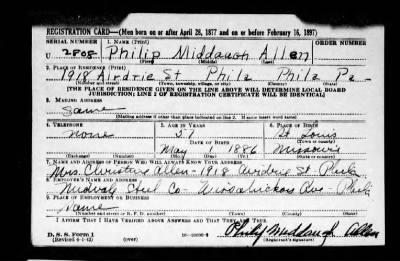 REGISTRATION CARD—(Men born on or after April 28, 1877 and on or before February 16, 1897)
SERIAL NUMBER 1. NAME (Print) ORDER NUMBER
U 2808 Philip Middaugh Allen
(First) (Middle) (Last)
2. PLACE OF RESIDENCE (Print)
1918 Airdrie St Phila Phila Pa -
(Number and street) (Town, township, village, or city) (County) (State)
[THE PLACE OF RESIDENCE GIVEN ON THE LINE ABOVE WILL DETERMINE LOCAL BOARD
JURISDICTION; LINE 2 OF REGISTRATION CERTIFICATE WILL BE IDENTICAL]
3. MAILING ADDRESS
Same
[Mailing address if other than place indicated on line 2. If same insert word same]
4. TELEPHONE 5. AGE IN YEARS 6. PLACE OF BIRTH
none 57 St Louis
DATE OF BIRTH (Town or county)
May 1 1886 Missouri
(Exchange) (Number) (Mo.) (Day) (Yr.) (State or country)
7. NAME AND ADDRESS OF PERSON WHO WILL ALWAYS KNOW YOUR ADDRESS
Mrs. Christine Allen - 1918 Airdrie St Phila
8. EMPLOYER'S NAME AND ADDRESS
Midvale Steel Co - Wissahickon Ave - Phila
9. PLACE OF EMPLOYMENT OR BUSINESS
Same
(Number and street or R. F. D. number) (Town) (County) (State)
I AFFIRM THAT I HAVE VERIFIED ABOVE ANSWERS AND THAT THEY ARE TRUE.
D. S. S. Form 1
(Revised 4-1-42) (over) Philip Middaugh Allen
(Registrant's signature)